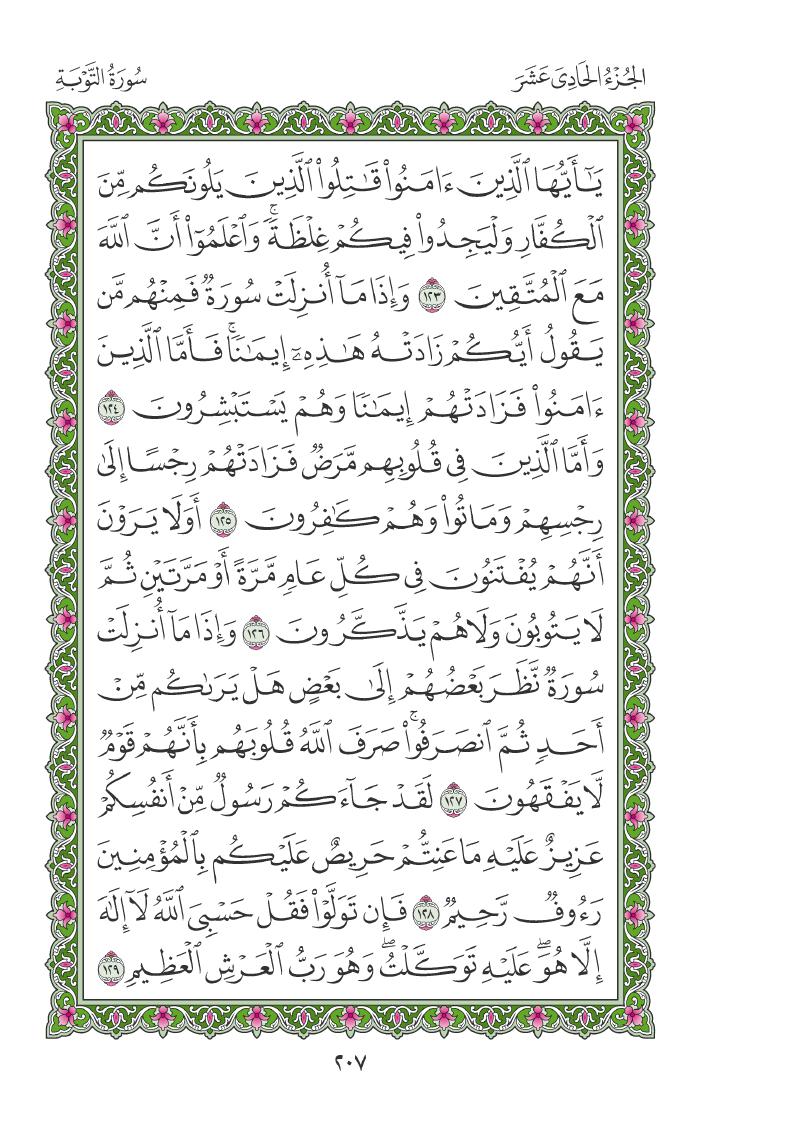 الجُزْءُ الحَادِى عَشَرَ
سُورَةُ التَّوْبَةِ
يَـٰٓأَيُّهَا ٱلَّذِينَ ءَامَنُوا۟ قَـٰتِلُوا۟ ٱلَّذِينَ يَلُونَكُم مِّنَ
ٱلْكُفَّارِ وَلْيَجِدُوا۟ فِيكُمْ غِلْظَةً ۚ وَٱعْلَمُوٓا۟ أَنَّ ٱللَّهَ
مَعَ ٱلْمُتَّقِينَ ١٢٣ وَإِذَا مَآ أُنزِلَتْ سُورَةٌ فَمِنْهُم مَّن
يَقُولُ أَيُّكُمْ زَادَتْهُ هَـٰذِهِۦٓ إِيمَـٰنًا ۚ فَأَمَّا ٱلَّذِينَ
ءَامَنُوا۟ فَزَادَتْهُمْ إِيمَـٰنًا وَهُمْ يَسْتَبْشِرُونَ ١٢٤
وَأَمَّا ٱلَّذِينَ فِى قُلُوبِهِم مَّرَضٌ فَزَادَتْهُمْ رِجْسًا إِلَىٰ
رِجْسِهِمْ وَمَاتُوا۟ وَهُمْ كَـٰفِرُونَ ١٢٥ أَوَلَا يَرَوْنَ
أَنَّهُمْ يُفْتَنُونَ فِى كُلِّ عَامٍ مَّرَّةً أَوْ مَرَّتَيْنِ ثُمَّ
لَا يَتُوبُونَ وَلَا هُمْ يَذَّكَّرُونَ ١٢٦ وَإِذَا مَآ أُنزِلَتْ
سُورَةٌ نَّظَرَ بَعْضُهُمْ إِلَىٰ بَعْضٍ هَلْ يَرَىٰكُم مِّنْ
أَحَدٍ ثُمَّ ٱنصَرَفُوا۟ ۚ صَرَفَ ٱللَّهُ قُلُوبَهُم بِأَنَّهُمْ قَوْمٌ
لَّا يَفْقَهُونَ ١٢٧ لَقَدْ جَآءَكُمْ رَسُولٌ مِّنْ أَنفُسِكُمْ
عَزِيزٌ عَلَيْهِ مَا عَنِتُّمْ حَرِيصٌ عَلَيْكُم بِٱلْمُؤْمِنِينَ
رَءُوفٌ رَّحِيمٌ ١٢٨ فَإِن تَوَلَّوْا۟ فَقُلْ حَسْبِىَ ٱللَّهُ لَآ إِلَـٰهَ
إِلَّا هُوَ ۖ عَلَيْهِ تَوَكَّلْتُ ۖ وَهُوَ رَبُّ ٱلْعَرْشِ ٱلْعَظِيمِ ١٢٩
٢٠٧